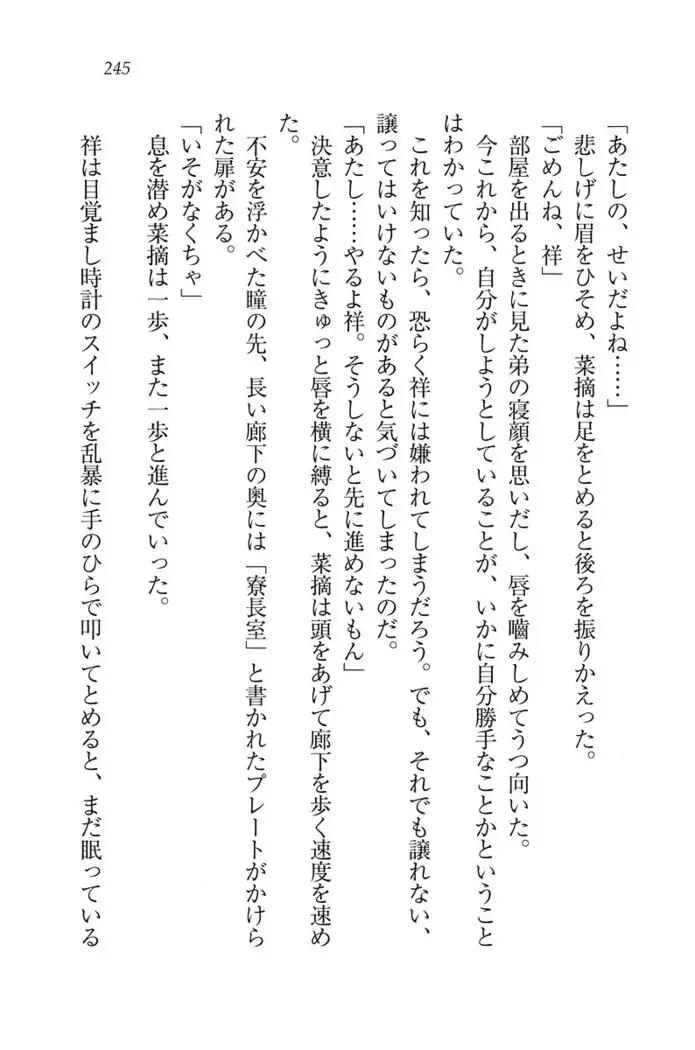 245
「あたしの、せいだよね……」
悲しげに眉をひそめ、菜摘は足をとめると後ろを振りかえった。
「ごめんね、祥」
部屋を出るときに見た弟の寝顔を思いだし、唇を嚙みしめてうつ向いた。
今これから、自分がしようとしていることが、いかに自分勝手なことかということ
はわかっていた。
これを知ったら、恐らく祥には嫌われてしまうだろう。でも、それでも譲れない、
譲ってはいけないものがあると気づいてしまったのだ。
「あたし……やるよ祥。そうしないと先に進めないもん」
決意したようにきゅっと唇を横に縛ると、菜摘は頭をあげて廊下を歩く速度を速め
た。
不安を浮かべた瞳の先、長い廊下の奥には「寮長室」と書かれたプレートがかけら
れた扉がある。
「いそがなくちゃ」
息を潜め菜摘は一歩、また一歩と進んでいった。
祥は目覚まし時計のスイッチを乱暴に手のひらで叩いてとめると、まだ眠っている